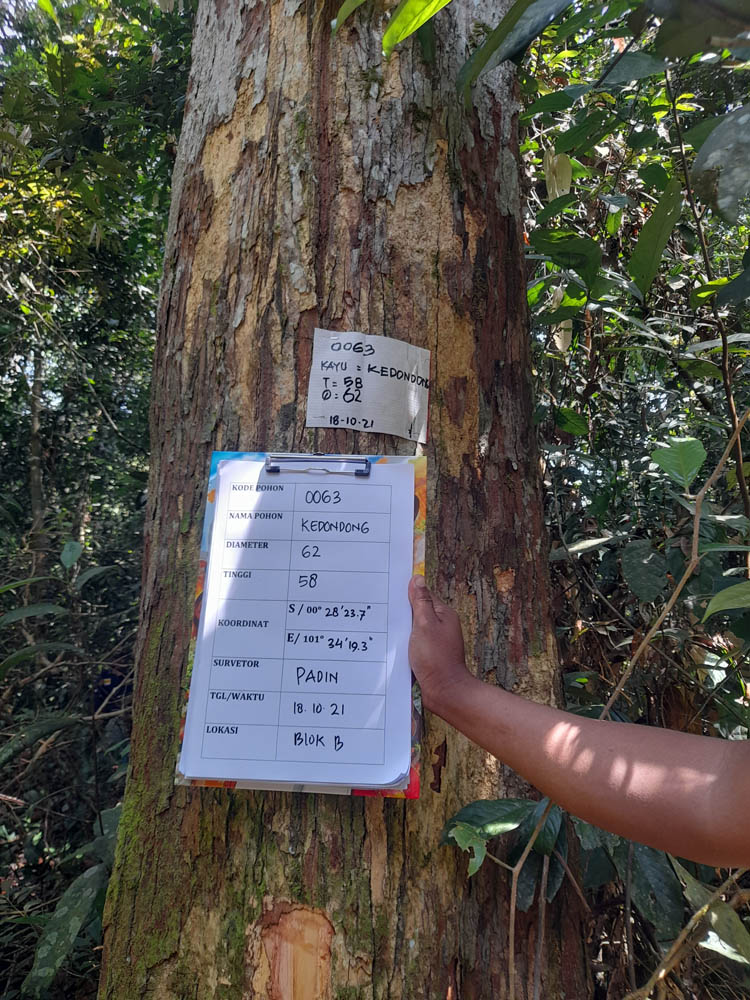 0063
KAYU = KEDONDONG
T = 58
Ø = 62
18-10-21
KODE POHON 0063
NAMA POHON KEDONDONG
DIAMETER 62
TINGGI 58
KOORDINAT S / 00° 28'23.7"
E/ 101° 34'19.3"
SURVETOR PADIN
TGL/WAKTU 18.10.21
LOKASI BLOK B